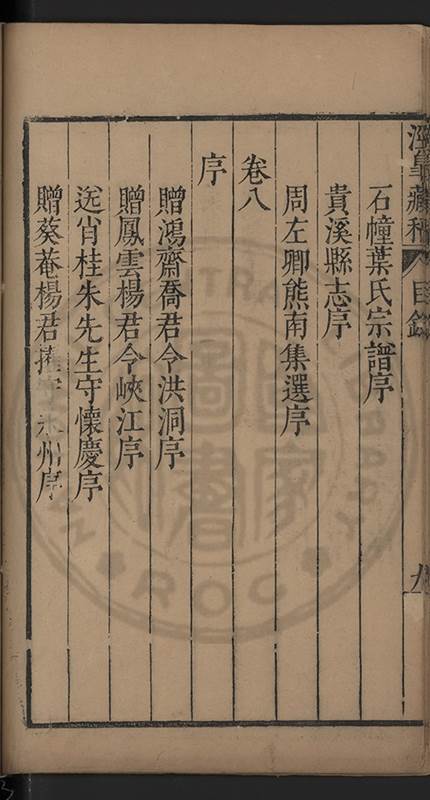 涇臯藏稿 目錄
石幢葉氏宗譜序
貴溪縣志序
周左卿熊南集選序
卷八
序
贈鴻齋喬君令洪洞序
贈鳳雲楊君令峽江序
送肖桂朱先生守懷慶序
贈葵菴楊君擢守永州序